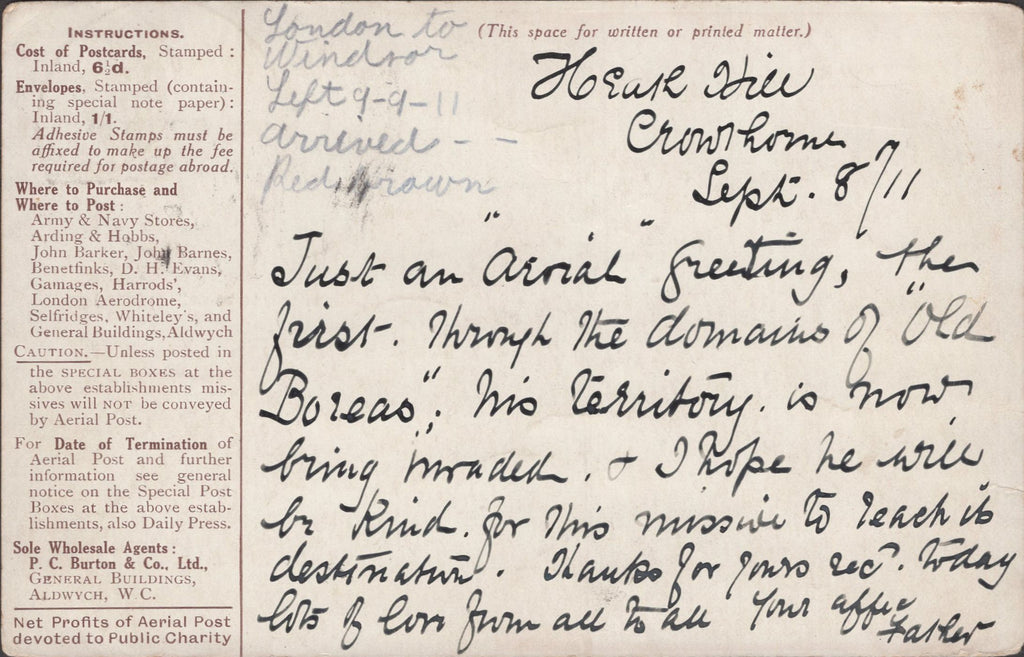 INSTRUCTIONS.
Cost of Postcards, Stamped :
Inland, 6½d.
Envelopes, Stamped (contain-
ing special note paper) :
Inland, 1/1.
Adhesive Stamps must be
affixed to make up the fee
required for postage abroad.
Where to Purchase and
Where to Post :
Army & Navy Stores,
Arding & Hobbs,
John Barker, John Barnes,
Benetfinks, D. H. Evans,
Gamages, Harrods',
London Aerodrome,
Selfridges, Whiteley's, and
General Buildings, Aldwych
CAUTION.—Unless posted in
the SPECIAL BOXES at the
above establishments mis-
sives will NOT be conveyed
by Aerial Post.
For Date of Termination of
Aerial Post and further
information see general
notice on the Special Post
Boxes at the above estab-
lishments, also Daily Press.
Sole Wholesale Agents :
P. C. Burton & Co., Ltd.,
GENERAL BUILDINGS,
ALDWYCH, W.C.
Net Profits of Aerial Post
devoted to Public Charity
London to
Windsor
Left 9-9-11
arrived - -
Red Brown
(This space for written or printed matter.)
Heath Hill
Crowthorne
Sept. 8/11
Just an "Aerial" greeting, the
first. through the domains of "Old
Boreas", his territory. is now
being "invaded. & I hope he will
be kind. for this missive to reach its
destination. Thanks for yours rec^d. today
lots of love from all to all Your affec
Father